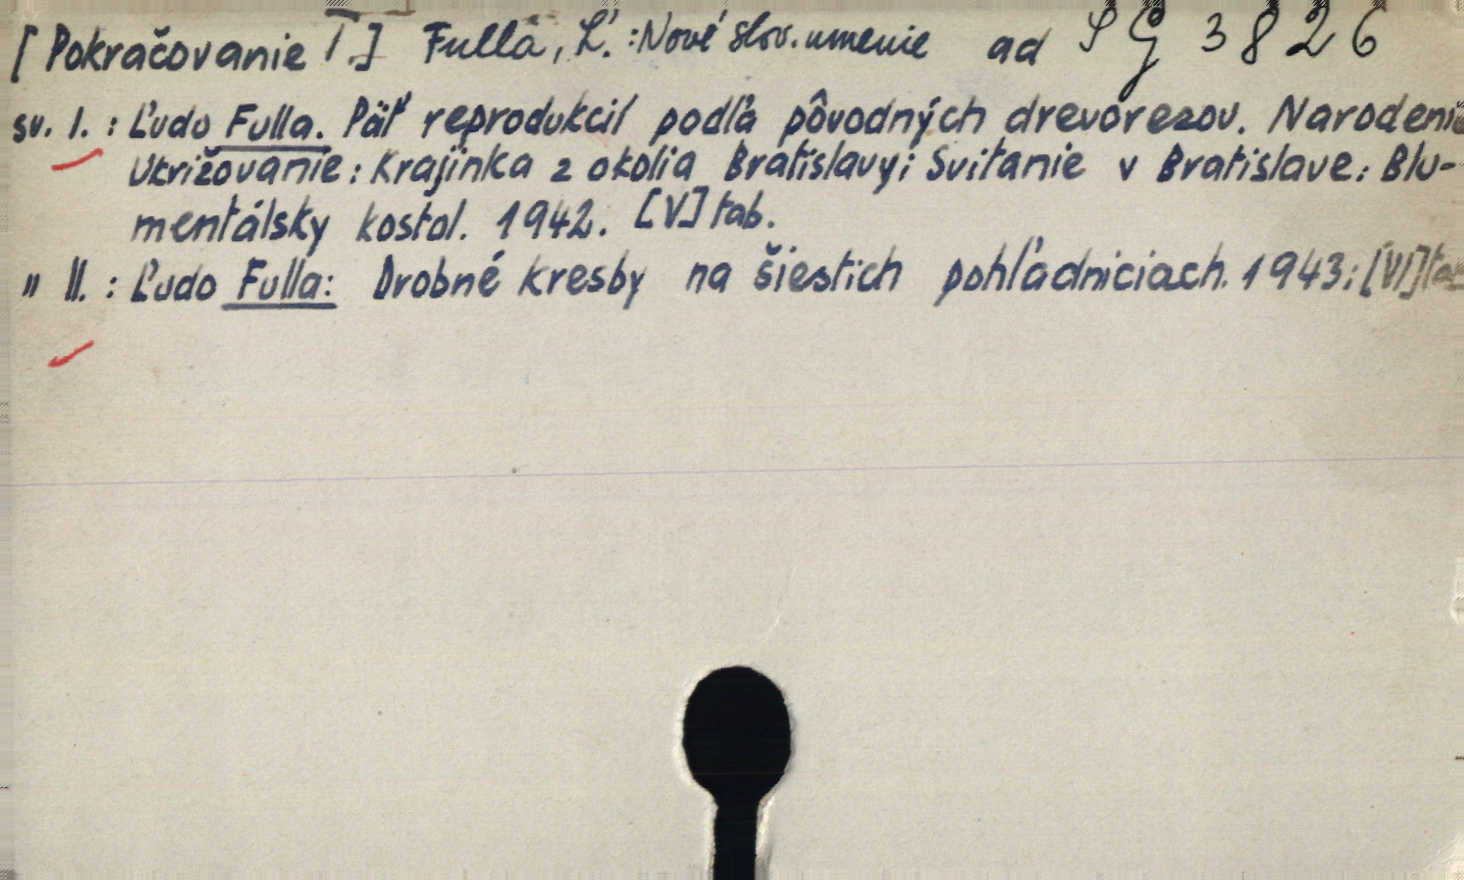 [Pokračovanie I.] Fulla, Ľ.: Nové slov. umenie ad SG 3826
sv. I.: Ľudo Fulla. Päť reprodukcií podľa pôvodných drevorezov. Narodenie
Ukrižovanie: Krajinka z okolia Bratislavy; Svitanie v Bratislave: Blu-
mentálsky kostol. 1942. [V] tab.
" II.: Ľudo Fulla: Drobné kresby na šiestich pohľadniciach. 1943: [VI] tab